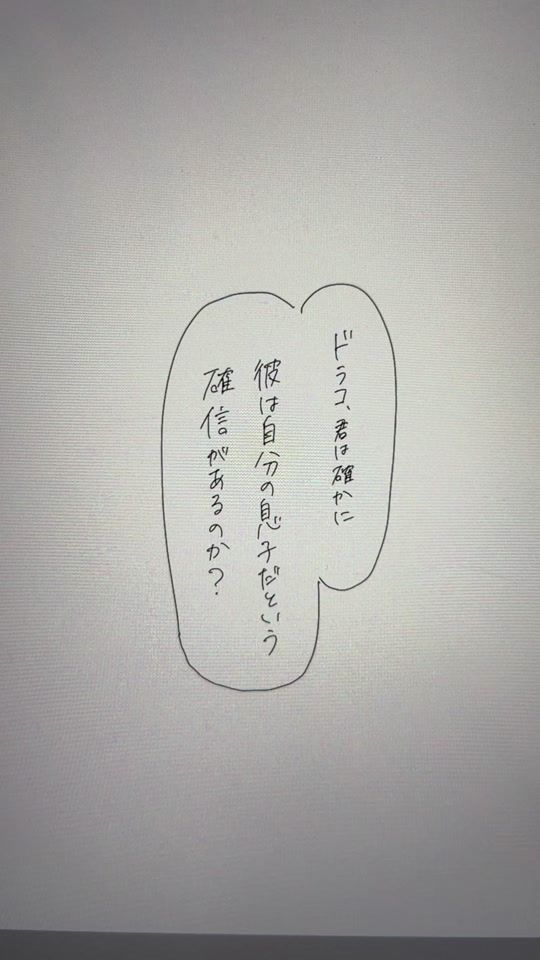 ドラコ、君は確かに
彼は自分の息子だという
確信があるのか?